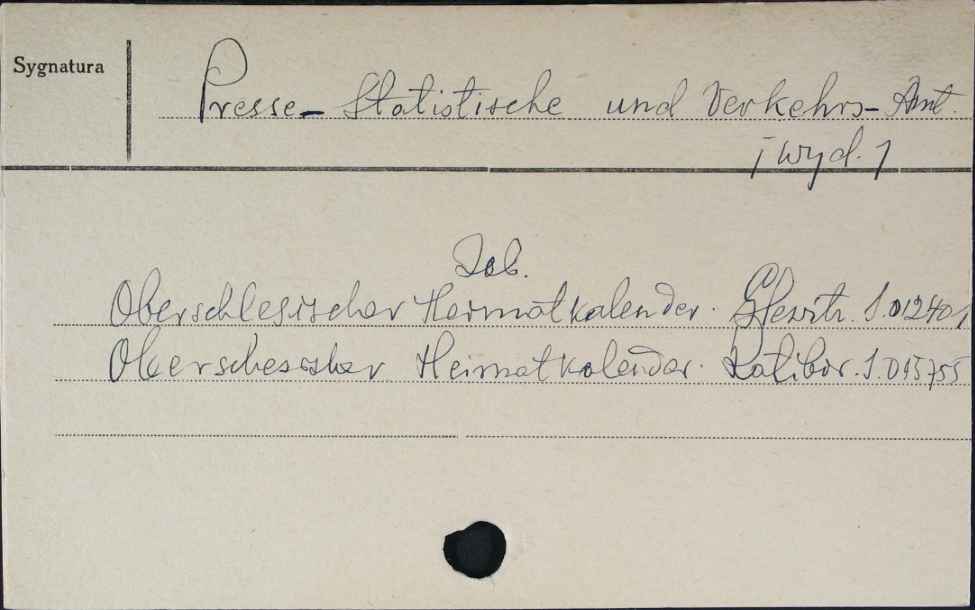 Sygnatura
Presse- Statistische und Verkehrs- Amt
[wyd.]
Zob.
Oberschlesischer Heimatkalender. Gleiwitz. S.012401
Oberschesischer Heimatkalender. Ratibor. S.015755